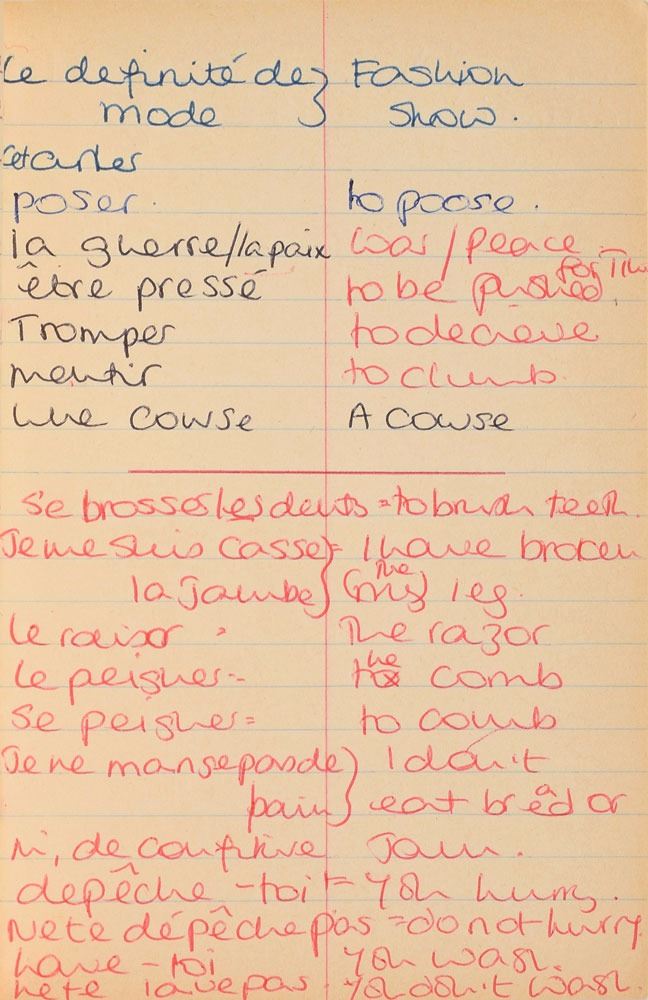 Le definité de} Fashion
mode Show.
poser. to poose.
la guerre/la paix War/Peace
être pressé to be pushed for Time
Tromper to decieve
mentir to climb.
une cowse A cowse
Se brosses les dents = to brush teeth.
Je me suis casse}= I have brocen
la Jambe} (my) The leg.
le raisor = The razor
Le peigner = the comb
Se peigner = to comb
Je ne mange pas de} I don't
pain} eat brêad or
ni, de confitive Jam.
depêche - toi = you hurry.
Ne te dépêche pas = do not hurry.
lave - toi you wash.
ne te lave pas you don't wash.